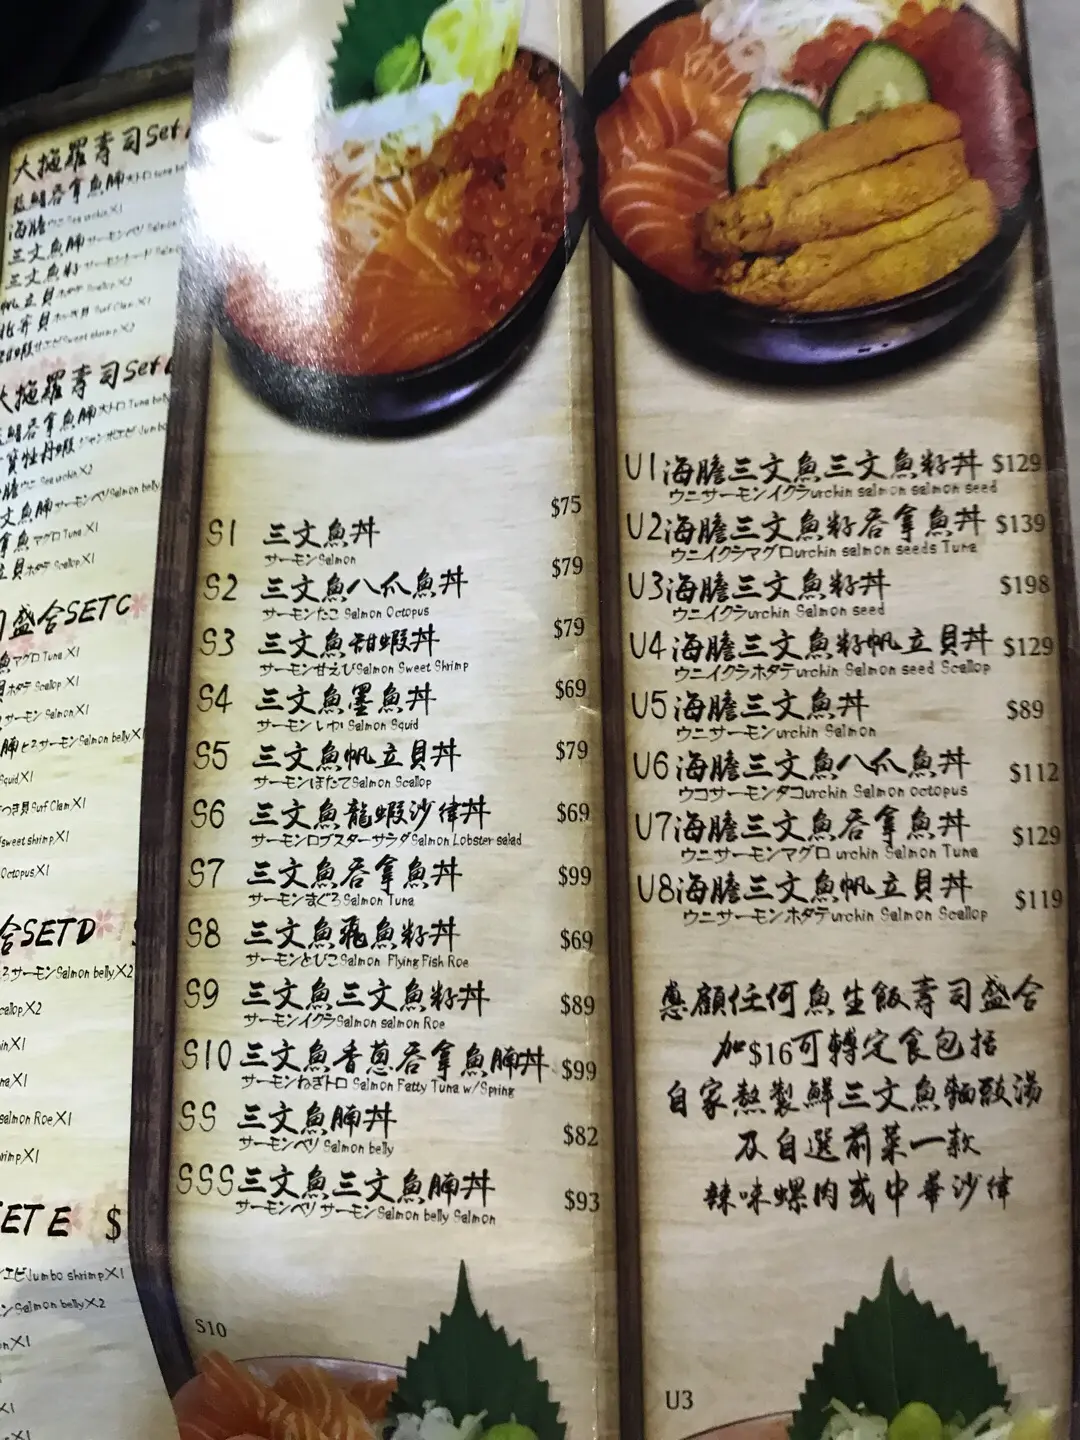 大拖羅壽司Set
藍鰭吞拿魚腩大トロ tuna
海膽ウニSea urchin X1
三文魚腩サーモンベリ Salmon
三文魚籽
帆立貝ホタテ Scallop X2
北寄貝 Surf Clam X1
甜蝦甘エビSweet shrimp X2
大拖羅壽司Set
藍鰭吞拿魚腩大トロ Tuna belly
牡丹蝦ジャンボエビJumbo
膽ウニ Sea urchin X2
文魚腩サーモンベリSalmon belly
拿魚マグロ Tuna X1
貝ホタテ Scallop X1
司盛合SETC
魚マグロ Tuna X1
ホタテ Scallop X1
サーモン Salmon X1
腩とろサーモンSalmon belly X1
Squid X1
つき貝 Surf Clam X1
sweet shrimp X1
Octopus X1
合SETD
ろサーモンSalmon belly X2
callop X2
salmon Roe X1
SETE $
エビJumbo shrimp X1
Salmon belly X2
S1 三文魚丼 $75
サーモンSalmon
S2 三文魚八爪魚丼 $79
サーモンたこ Salmon Octopus
S3 三文魚甜蝦丼 $79
サーモン甘えびSalmon Sweet Shrimp
S4 三文魚墨魚丼 $69
サーモン いか Salmon Squid
S5 三文魚帆立貝丼 $79
サーモンほたてSalmon Scallop
S6 三文魚龍蝦沙律丼 $69
サーモンロブスターサラダSalmon Lobster salad
S7 三文魚吞拿魚丼 $99
サーモンまぐろSalmon Tuna
S8 三文魚飛魚籽丼 $69
サーモンとびこSalmon Flying Fish Roe
S9 三文魚三文魚籽丼 $89
サーモンイクラSalmon salmon Roe
S10 三文魚香蔥吞拿魚腩丼 $99
サーモンねぎトロ Salmon Fatty Tuna w/Spring
SS 三文魚腩丼 $82
サーモンベリ Salmon belly
SSS三文魚三文魚腩丼 $93
サーモンベリ サーモンSalmon belly Salmon
S10
U1海膽三文魚三文魚籽丼 $129
ウニサーモンイクラurchin salmon salmon seed
U2海膽三文魚籽吞拿魚丼 $139
ウニイクラマグロurchin salmon seeds Tuna
U3海膽三文魚籽丼 $198
ウニイクラurchin Salmon seed
U4海膽三文魚籽帆立貝丼 $129
ウニイクラホタテurchin Salmon seed Scallop
U5海膽三文魚丼 $89
ウニサーモンurchin Salmon
U6海膽三文魚八爪魚丼 $112
ウコサーモンタコurchin Salmon octopus
U7海膽三文魚吞拿魚丼 $129
ウニサーモンマグロ urchin Salmon Tuna
U8海膽三文魚帆立貝丼 $119
ウニサーモンホタテurchin Salmon Scallop
惠顧任何魚生飯壽司盛合
加$16可轉定食包括
自家熬製鮮三文魚麵豉湯
及自選前菜一款
辣味螺肉或中華沙律
U3